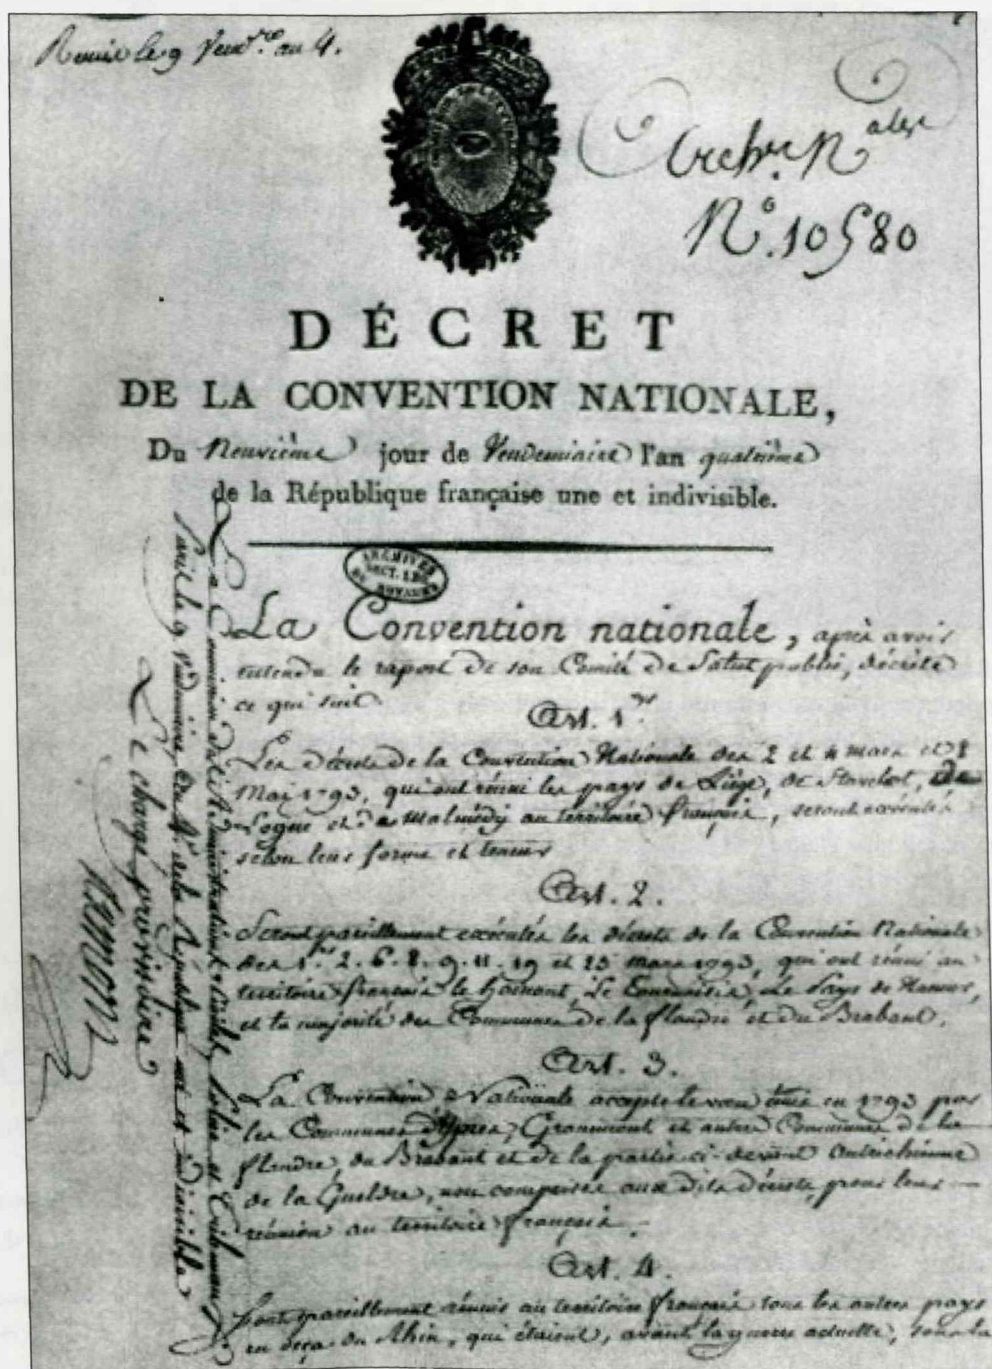 Remis le 9 Vend.re an 4.
Arch.es N.ales
N.o 10580
DÉCRET
DE LA CONVENTION NATIONALE,
Du Neuvième jour de Vendemiaire l'an quatrième
de la République française une et indivisible.
ARCHIVES
DU ROYAUME
La Convention nationale, après avoir
entendu le raport de son Comité de Salut public, décrète
ce qui suit
Art. 1.er
Les décrets de la Convention Nationale des 2 et 4 mars et 8
Mai 1793, qui ont réuni les pays de Liège, de Stavelot, de
Logne et de Malmédy au territoire français, seront exécutés
selon leur forme et teneur
Art. 2.
Seront pareillement exécutés les décrets de la Convention Nationale
des 1.er 2. 6. 8. 9. 11. 19 et 23 mars 1793, qui ont réuni au
territoire français le hainaut, Le Tournaisis, Le Pays de Namur,
et la majorité des Communes de la flandre et du Brabant.
Art. 3.
La Convention Nationale accepte le vœu émis en 1793 par
les Communes d'Ypres, Grammont et autres Communes de la
flandre, du Brabant et de la partie ci-devant Autrichienne
de la Gueldre, non comprises aux dits décrets, pour leur
réunion au territoire français.
Art. 4.
Sont pareillement réunis au territoire français tous les autres pays
en deça du Rhin, qui étaient, avant la guerre actuelle, sous la
La Commission des Administrations Civiles, Police et Tribunaux
Paris le 9 Vendemiaire, an 4.e de la République une et indivisible
Le chargé provisoire